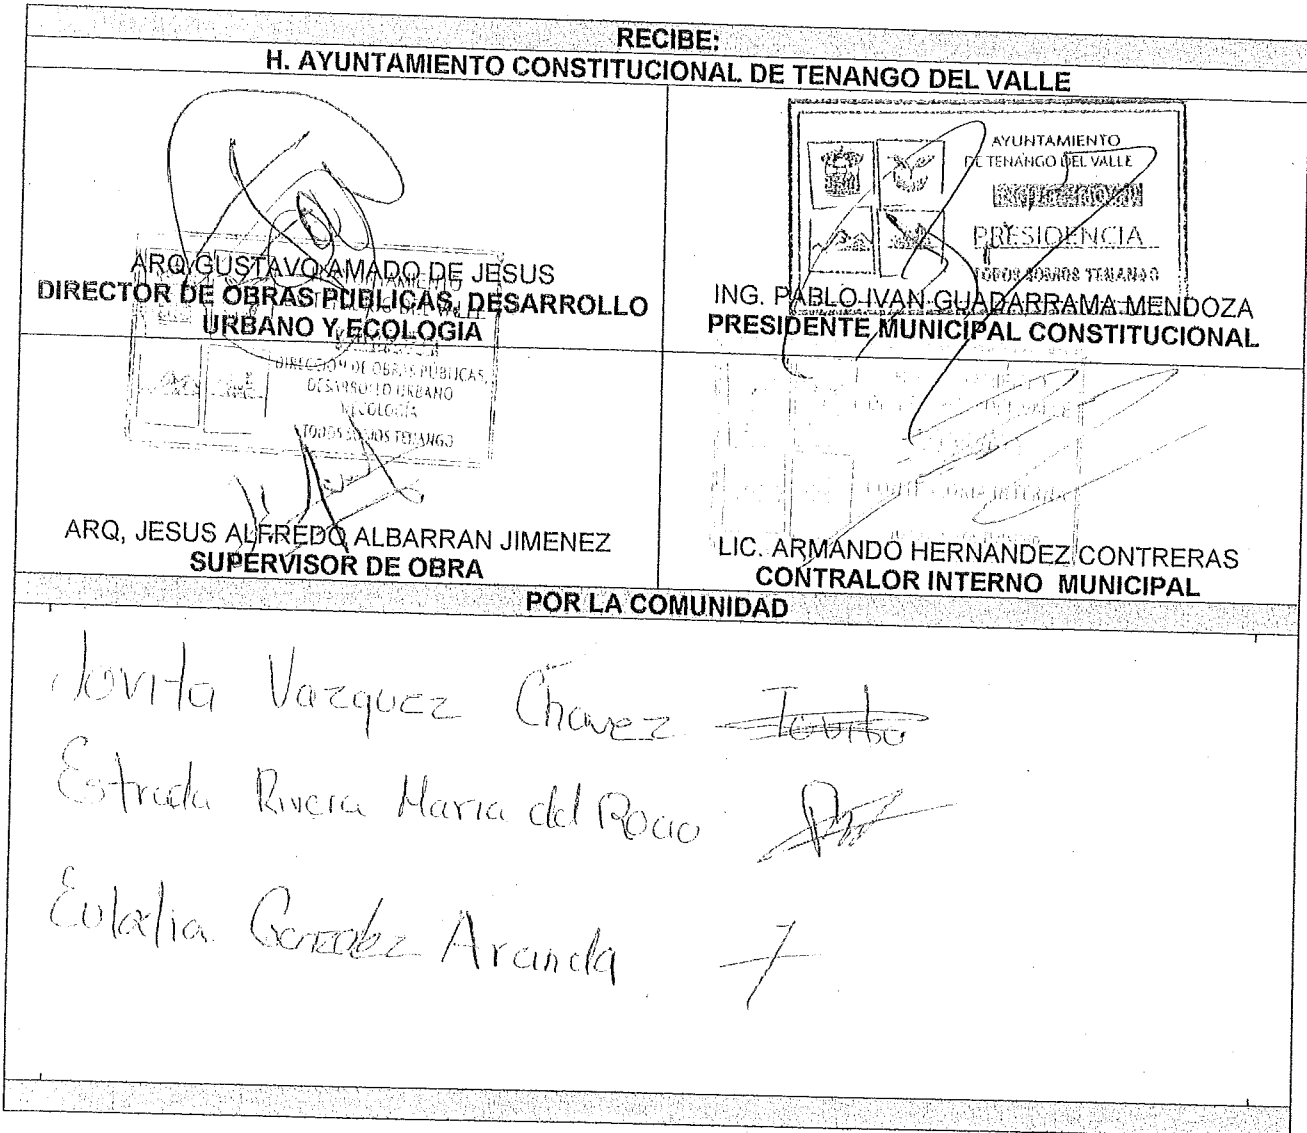 RECIBE:
H. AYUNTAMIENTO CONSTITUCIONAL DE TENANGO DEL VALLE
ARQ GUSTAVO AMADO DE JESUS
DIRECTOR DE OBRAS PUBLICAS, DESARROLLO
URBANO Y ECOLOGIA
DIRECCION DE OBRAS PUBLICAS,
DESARROLLO URBANO
Y ECOLOGIA
TODOS SOMOS TENANGO
AYUNTAMIENTO
DE TENANGO DEL VALLE
PRESIDENCIA
TODOS SOMOS TENANGO
ING. PABLO IVAN GUADARRAMA MENDOZA
PRESIDENTE MUNICIPAL CONSTITUCIONAL
ARQ, JESUS ALFREDO ALBARRAN JIMENEZ
SUPERVISOR DE OBRA
DEL VALLE
INTERNA
LIC. ARMANDO HERNANDEZ CONTRERAS
CONTRALOR INTERNO MUNICIPAL
POR LA COMUNIDAD
Jovita Vazquez Chavez Jovita
Estrada Rivera Maria del Rocio
Eulalia Gonzalez Aranda